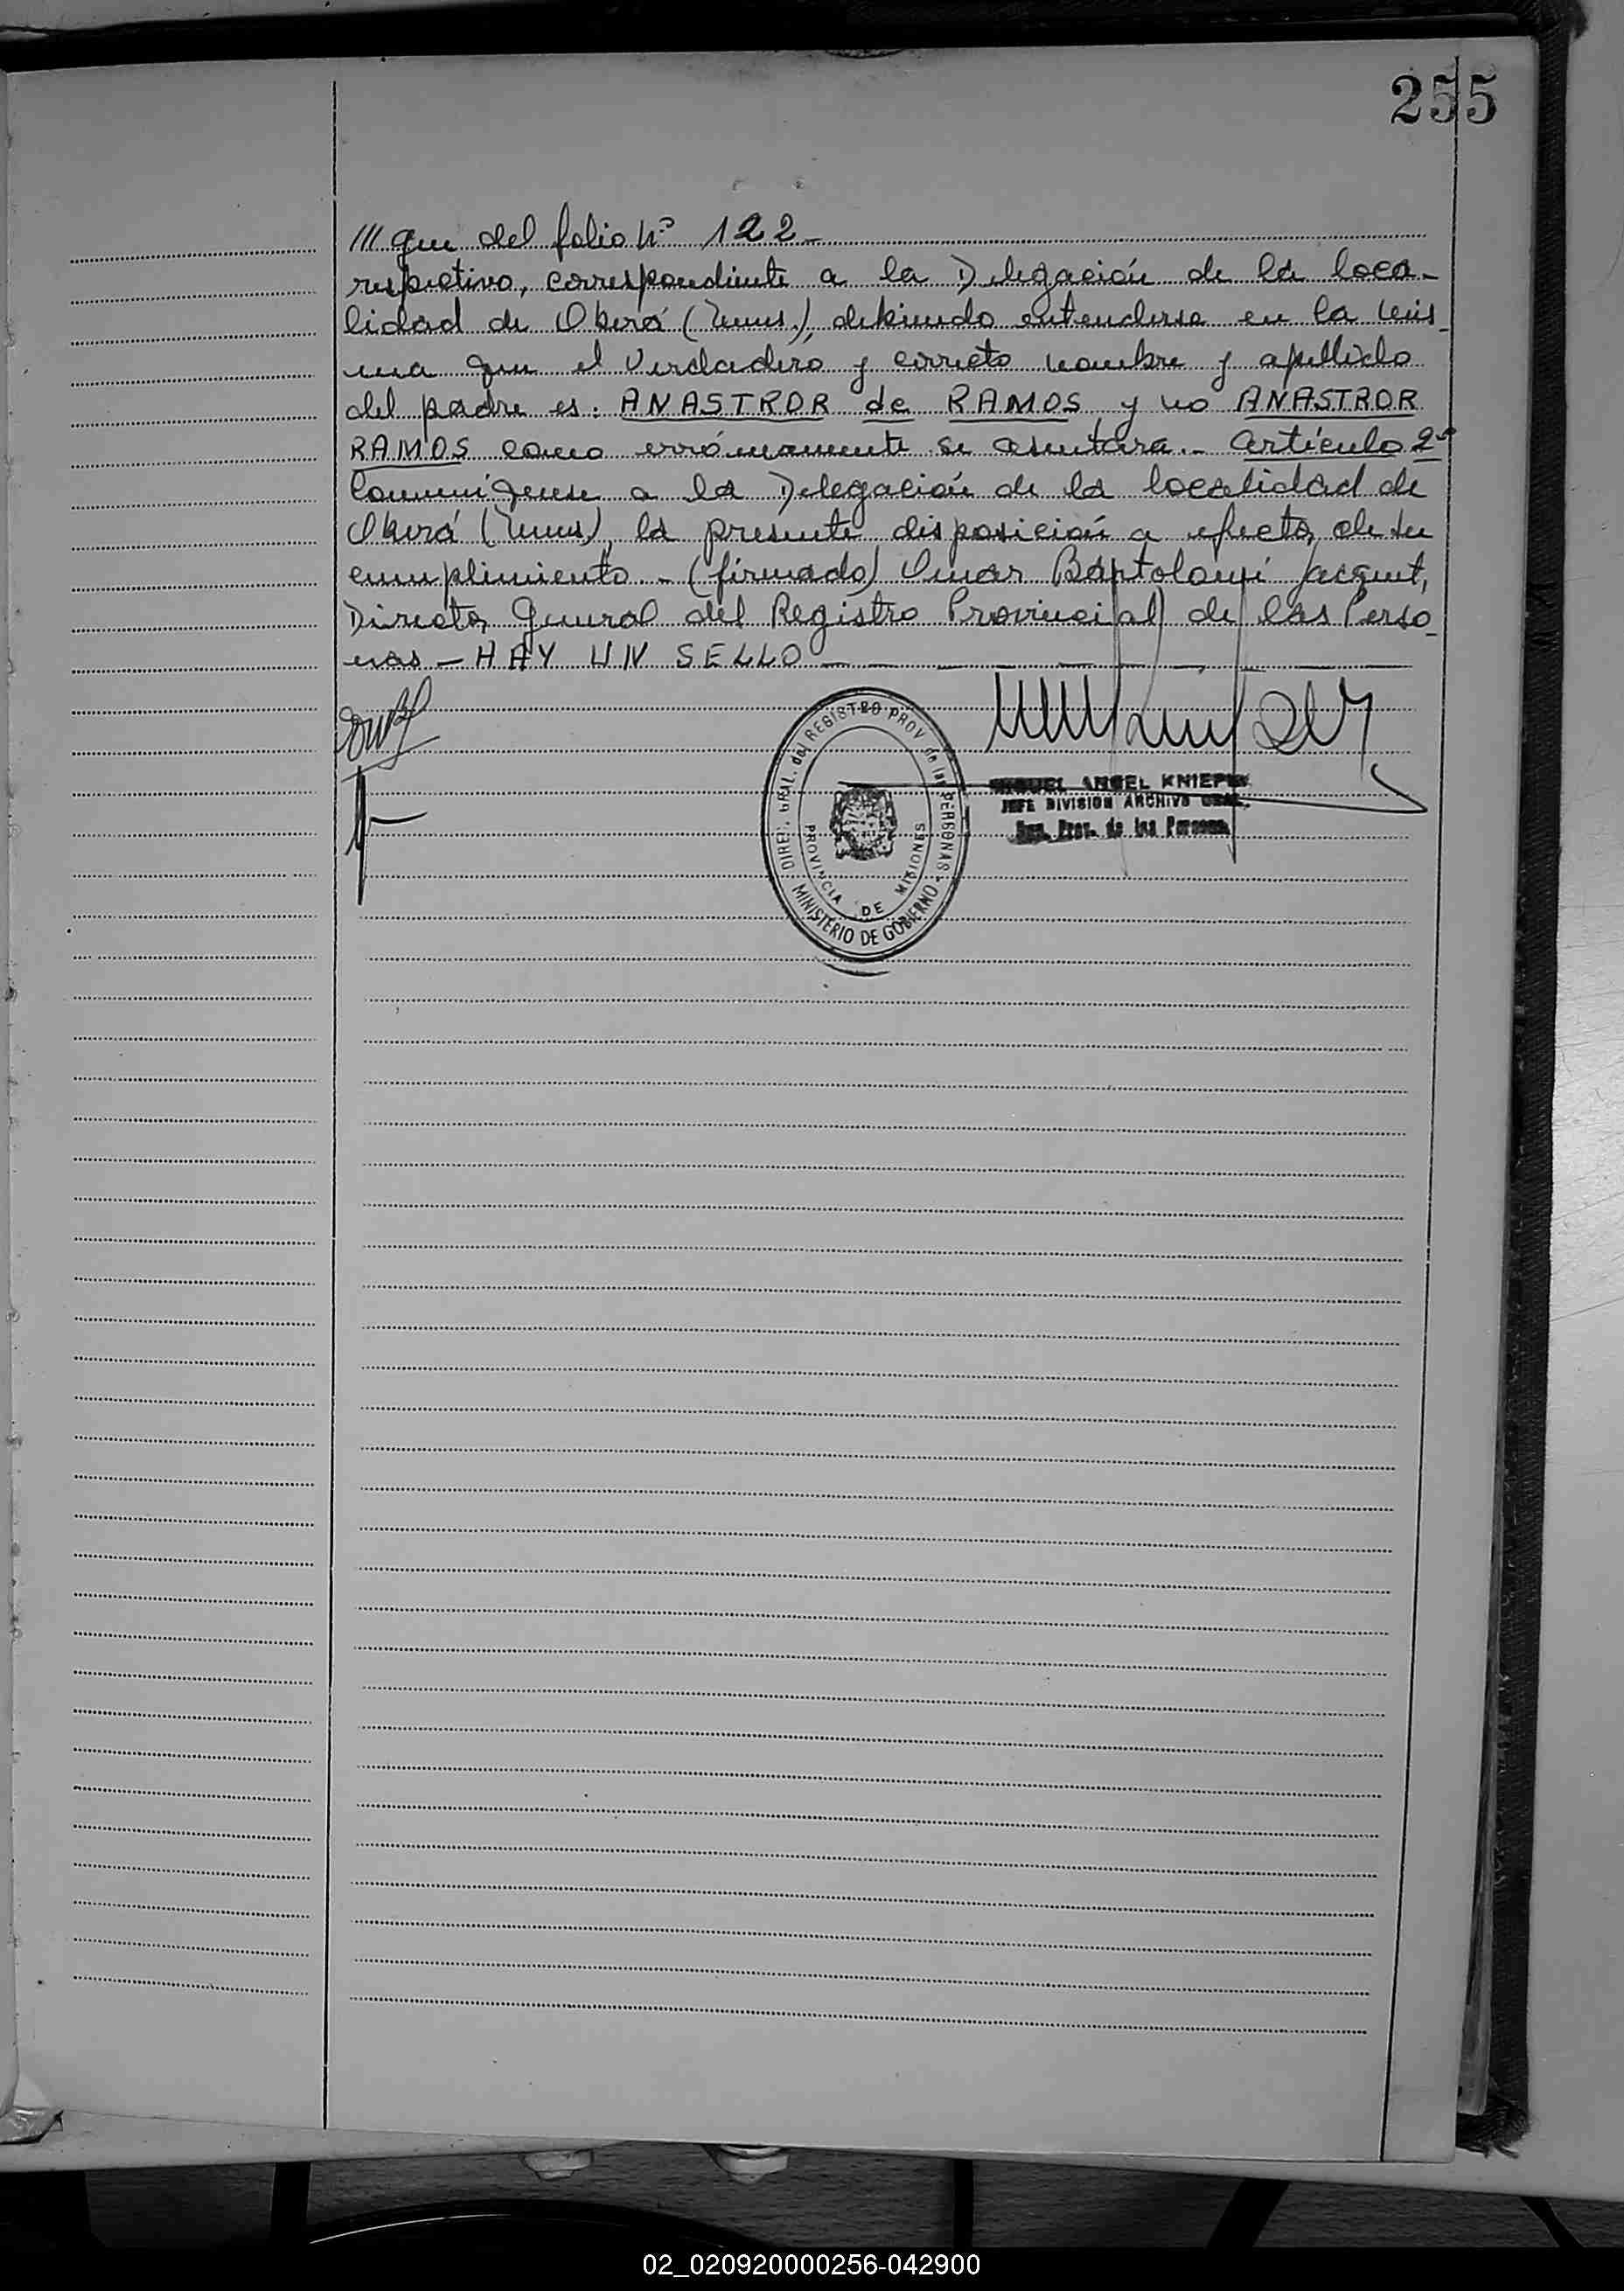 255
/// que del folio Nº 122 -
respectivo, correspondiente a la Delegación de la loca-
lidad de Oberá (Mnes.), debiendo entenderse en la mis-
ma que el verdadero y correcto nombre y apellido
del padre es: ANASTROR de RAMOS y no ANASTROR
RAMOS como erróneamente se asentara.- Artículo 2º
Comuníquese a la Delegación de la localidad de
Oberá (Mnes), la presente disposición a efectos de su
cumplimiento. - (firmado) Omar Bartolomé Jacquet,
Director General del Registro Provincial de las Perso-
nas - HAY UN SELLO - - - - - -
DIREC. GRAL. del REGISTRO PROV de las PERSONAS -
MINISTERIO DE GOBIERNO -
PROVINCIA DE MISIONES
MIGUEL ANGEL
JEFE DIVISION ARCHIVO GRAL.
Prov. de las Personas
02_020920000256-042900